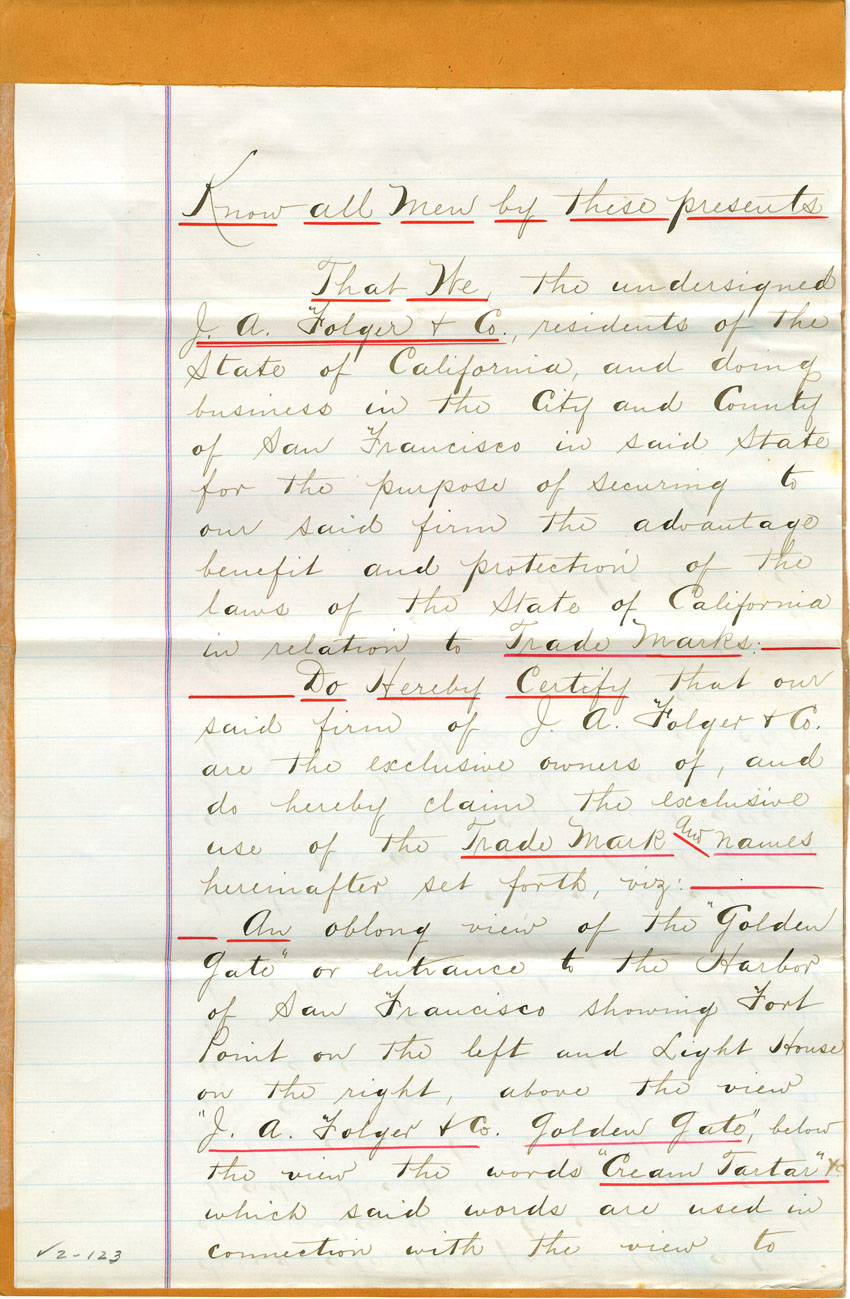 Know all Men by these presents
That We, the undersigned
J. A. Folger & Co., residents of the
State of California, and doing
business in the City and County
of San Francisco in said State
for the purpose of securing to
our said firm the advantage
benefit and protection of the
laws of the State of California
in relation to Trade Marks:
Do Hereby Certify that our
said firm of J. A. Folger & Co.
are the exclusive owners of, and
do hereby claim the exclusive
use of the Trade Mark and names
hereinafter set forth, viz:
An oblong view of the "Golden
Gate" or entrance to the Harbor
of San Francisco showing Fort
Point on the left and Light House
on the right, above the view
"J. A. Folger & Co. Golden Gate", below
the view the words "Cream Tartar" &c
which said words are used in
connection with the view to
√2-123